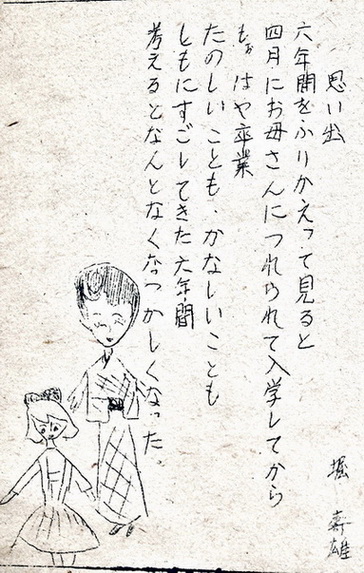 思い出
堀 寿雄
六年間をふりかえって見ると
四月にお母さんにつれられて入学してから
もはや卒業
たのしいことも、かなしいことも
ともにすごしてきた六年間
考えるとなんとなくなつかしくなった。